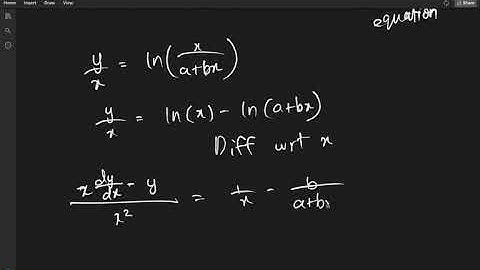 Home Insert Draw View Share
equation
y/x = ln(x/(a+bx))
y/x = ln(x) - ln(a+bx)
Diff wrt x
(x dy/dx - y)/x² = 1/x - b/(a+bx